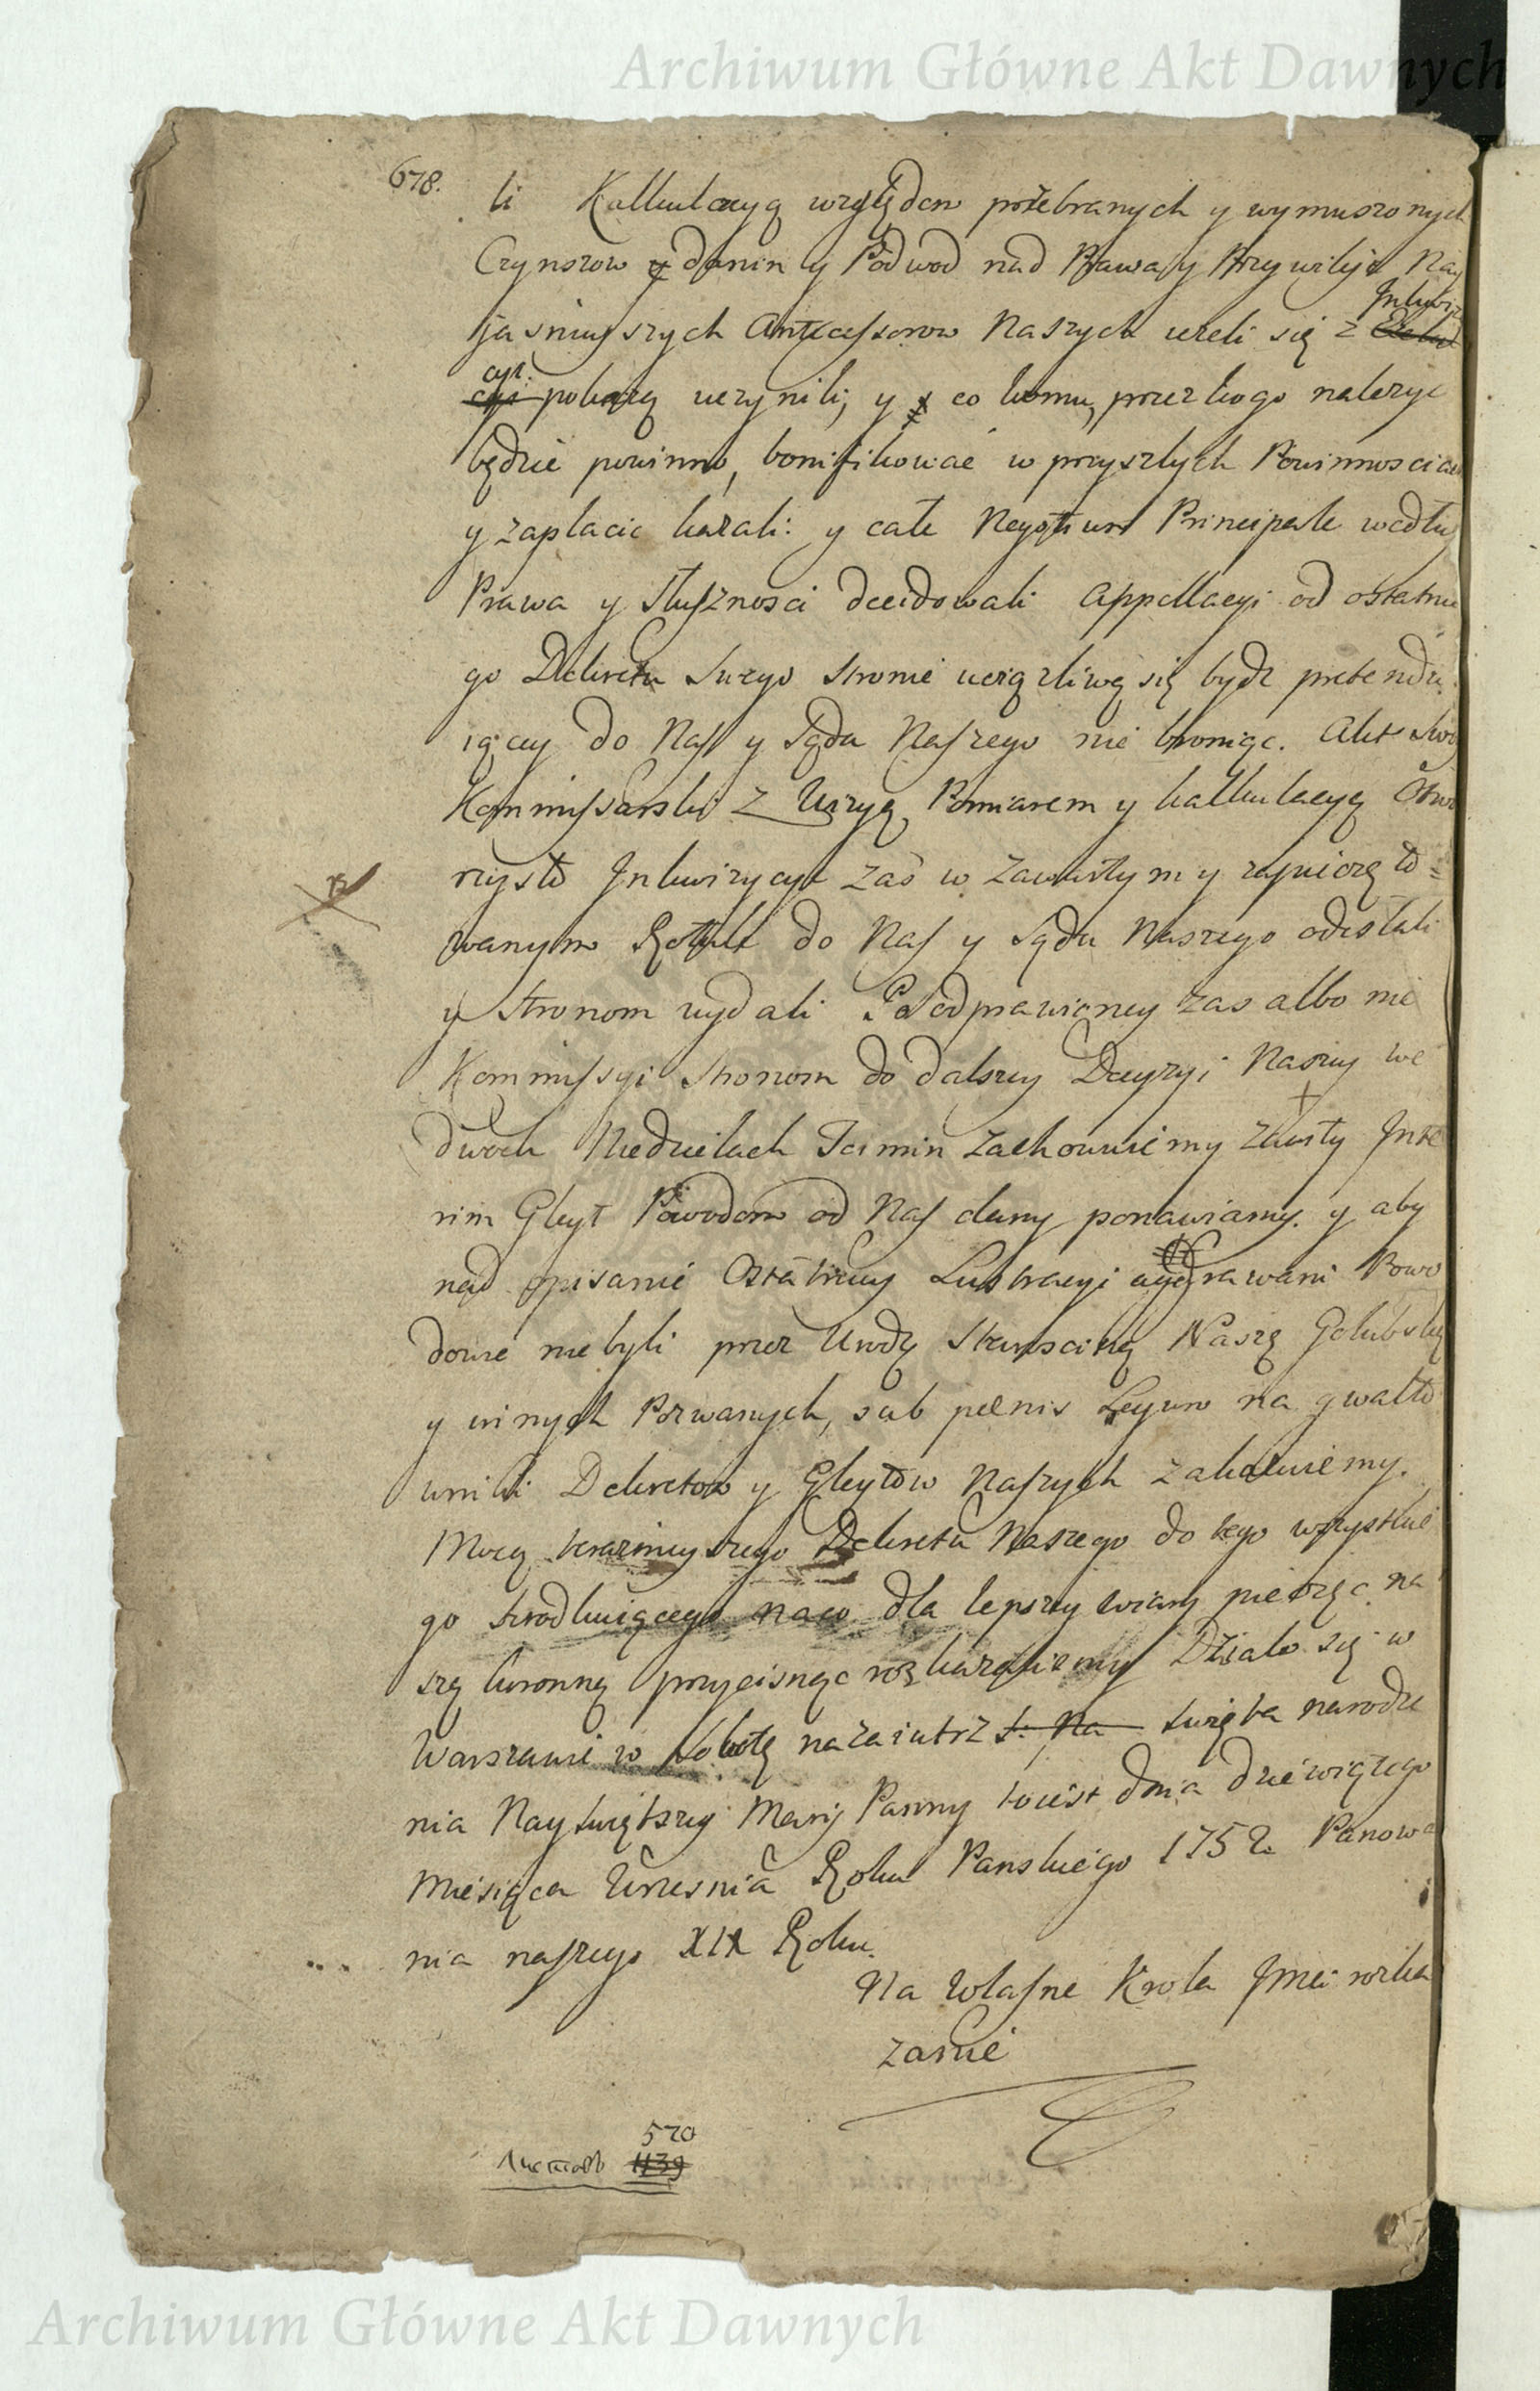 Archiwum Główne Akt Dawnych
678.
li Kalkulacyą względem przebranych y wymuszonych
Czynszow y danin y Podwod nad Prawa y Przywileje Nay
jasnieyszych Antecessorow Naszych ieżeli się z Inkwiz
cyi pokażą uczynili, y co komu, przez kogo należyć
będzie powinno, bonifikować w przyszłych Powinnosciach
y zapłacić kazali: y całe Negotium Principale według
Prawa y Słuszności decidowali Appellacyi od ostatnie
go Dekretu Swego stronie uciążliwą się bydz pretendu
iącey do Nas y Sądu Naszego nie broniąc. Akt swoy
Kommissarski z Wizyą, Pomiarem y kalkulacyą Otwo
rzysto Inkwizycye zaś w zawartym y zapieczęto=
wanym Rotule do Nas y Sądu Naszego odesłali
y stronom wydali Po odprawioney zas albo nie
Kommissyi stronom do dalszey Decyzyi Naszey we
dwoch Niedzielach Termin zachowuiemy zawity Inte
rim Gleyt Powodom od Nas dany ponawiamy. y aby
nad opisanie Ostatniey Lustracyi aggrawani Powo
dowie nie byli przez Urodz Starościnę Naszę Golubską
y innych Pozwanych, sub poenis Legum na gwałto
wniki Dekretow y Gleytow Naszych zakazuiemy.
Mocą teraznieyszego Dekretu Naszego do tego wszystkie
go srodkuiącego na co dla lepszey wiary pieczęc na
szę koronną przycisnąc rozkazalismy Działo się w
Warszawie w Sobotę nazaiutrz Swięta narodze
nia Nayswiętszey Maryi Panny to iest dnia dziewiątego
Miesiąca Wrzesnia Roku Panskiego 1752. Panowa
nia naszego XIX Roku.
Na własne Krola Jmci rozka
zanie
570
Листовъ 1139
Archiwum Główne Akt Dawnych